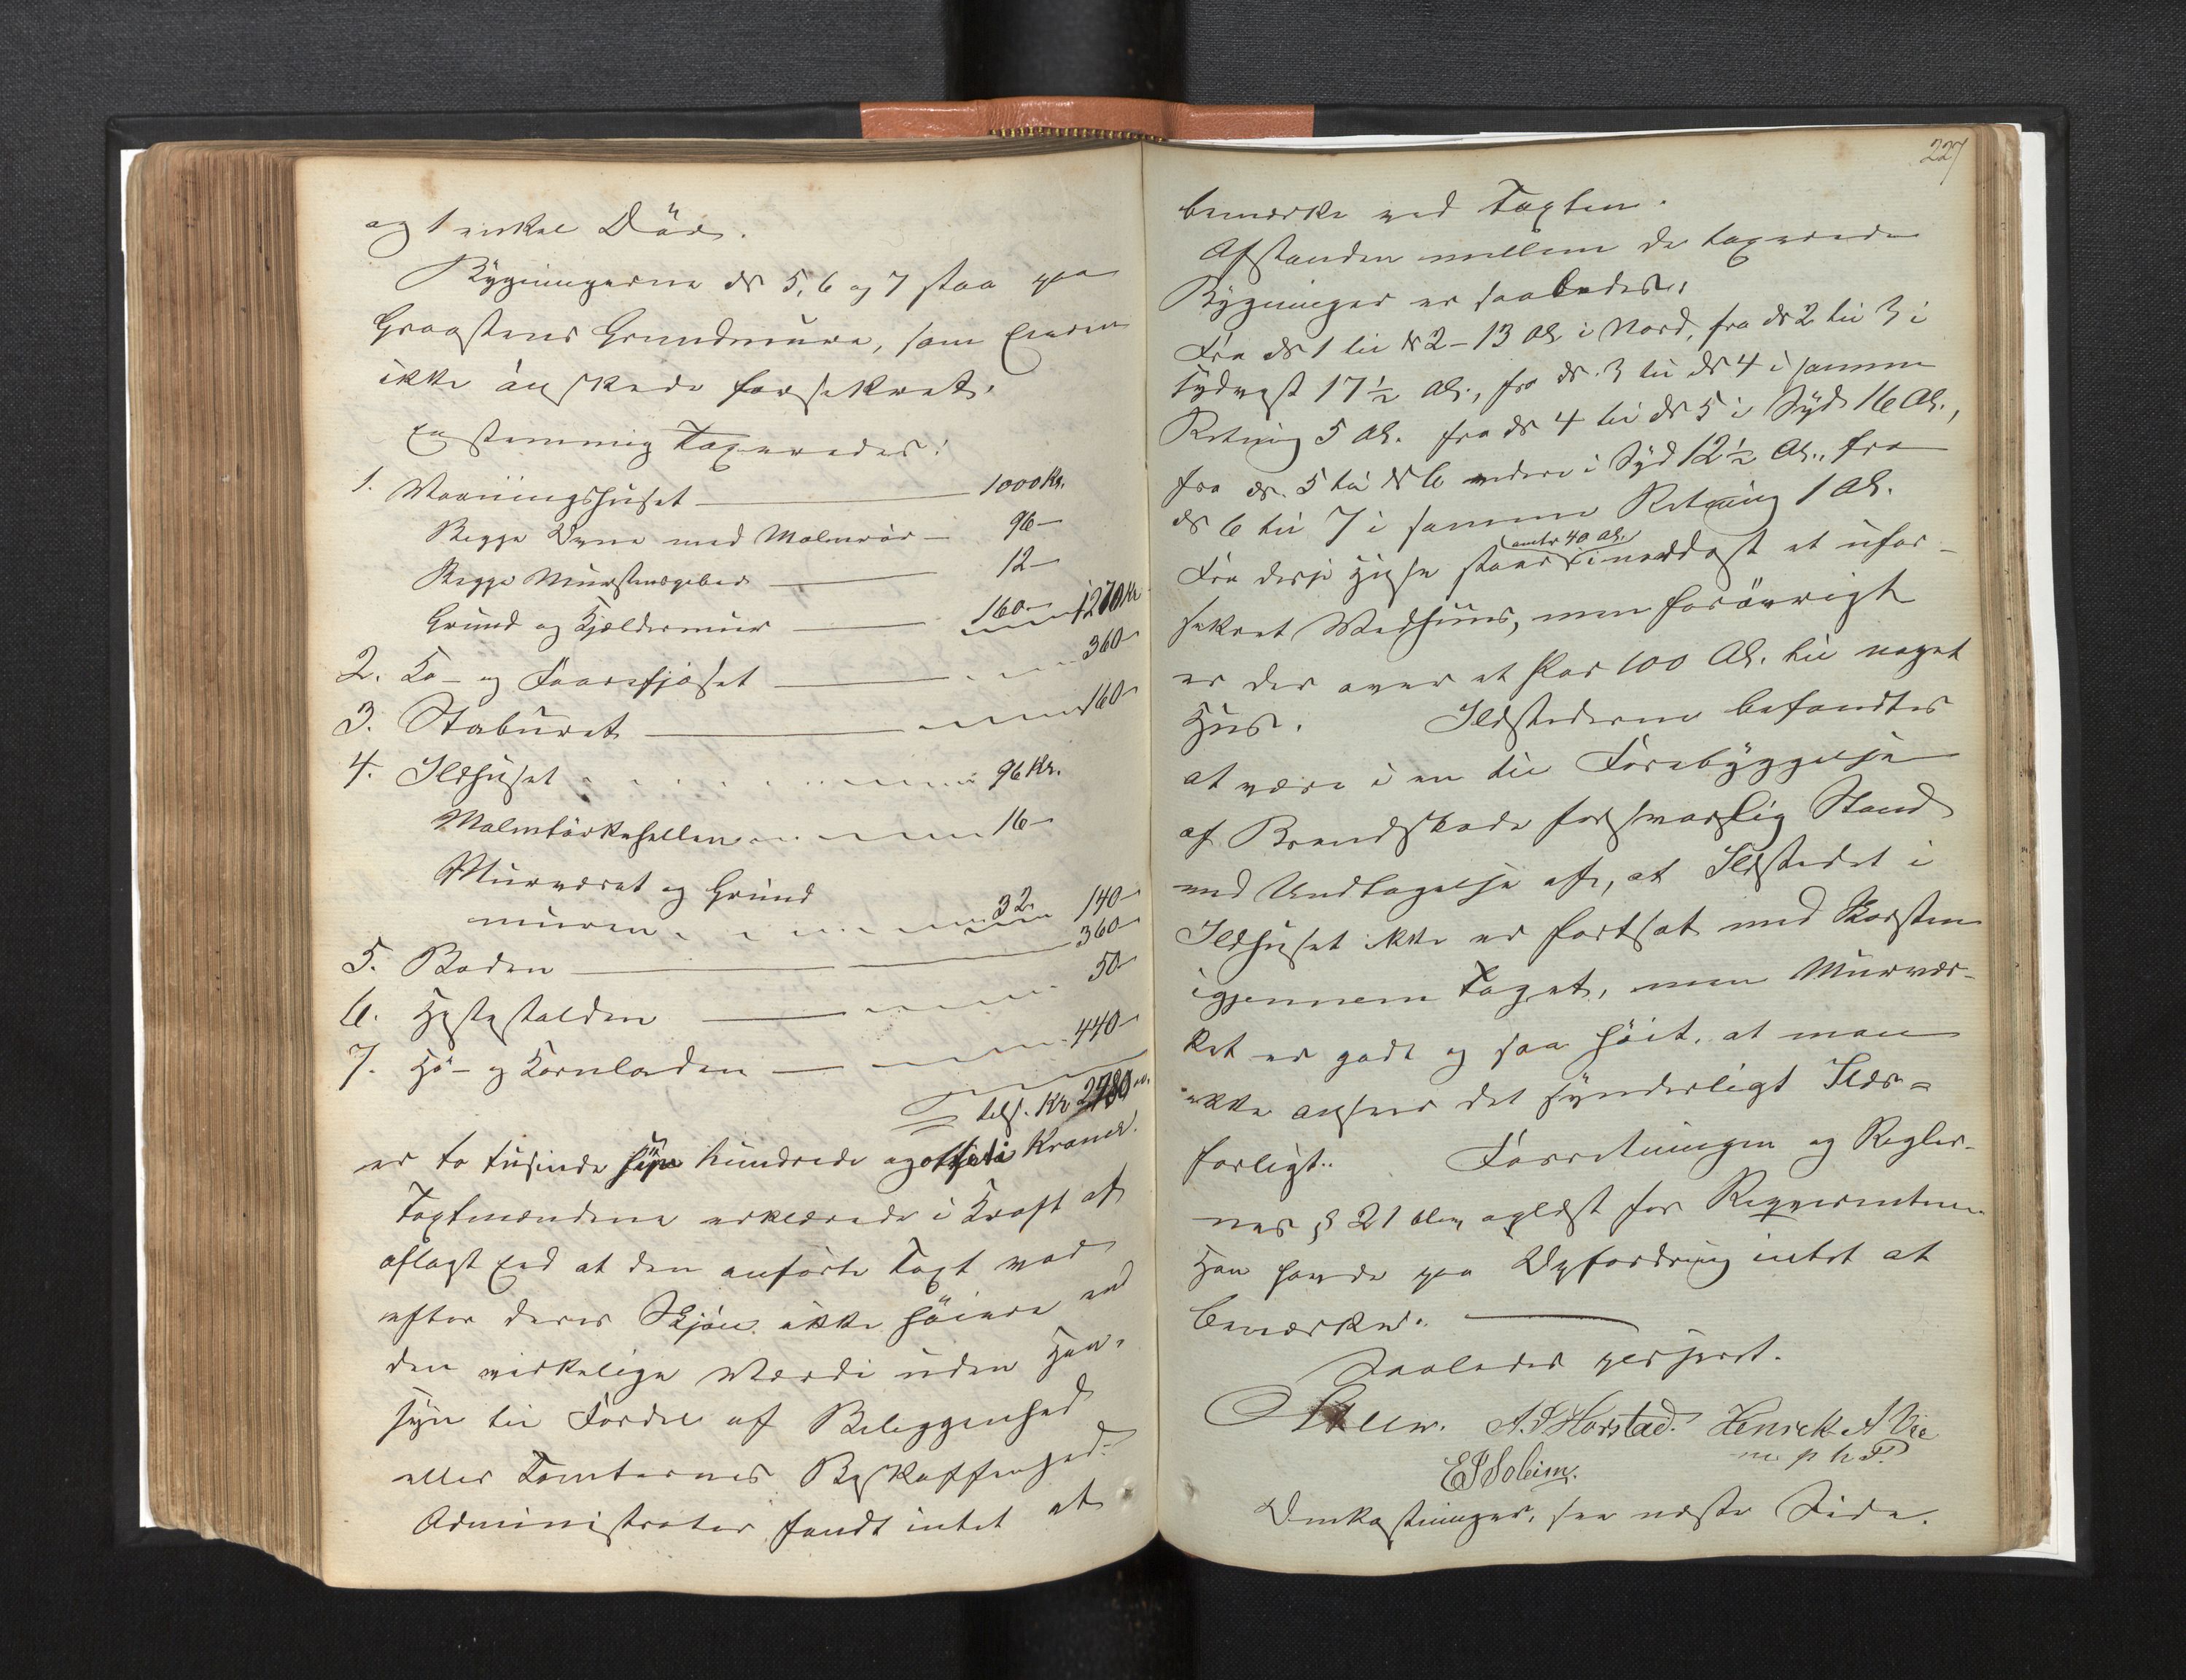 og 1 enkel Dör.
Bygningerne № 5, 6 og 7 staa paa
Graastens Grundmure, som Eieren
ikke önskede forsikret.
Enstemmig taxeredes:
1. Vaaningshuset — 1000 Kr.
Begge Ovne med Malmrör — 96 –
Begge Murstenspiber — 12 –
Grund og Kjeldermur — 160 – 1270 Kr
2. Ko- og Faarefjöset — 360 –
3. Staburet — 160 –
4. Ildhuset — 96 Kr.
Malmtörkehellen — 16 –
Murværet og Grund
muren — 32 140 –
5. Boden — 360 –
6. Hestestalden — 50 –
7. Hö- og Kornladen — 440 –
tils. Kr 2780
er to tusinde syv hundrede og otteti Kroner.
Taxtmændene erklærede i Kraft af
aflagt Eed at den anförte Taxt var
efter deres Skjön ikke höiere end
den virkelige Værdi uden Hen-
syn til Fordel af Beliggenhed
eller Tomternes Beskaffenhed.
Administrator fandt intet at
227
bemærke ved Taxten.
Afstanden mellem de taxerede
Bygninger er saaledes:
Fra № 1 til № 2 – 13 Al. i Nord, fra № 2 til 3 i
Sydvest 17½ Al., fra № 3 til № 4 i samme
Retning 5 Al. fra № 4 til № 5 i Syd 16 Al.,
fra № 5 til № 6 videre i Syd 12½ Al., fra
№ 6 til 7 i samme Retning 1 Al.
Fra disse Huse staar (omtr 40 Al.) i nordost et ufor-
sikret Vedhuus, men forövrigt
er der over et Par 100 Al. til noget
Huus. Ildstederne befandtes
at være i en til Forebyggelse
af Brandskade forsvarlig Stand
med Undtagelse af, at Ildstedet i
Ildhuset ikke er fortsat med Skorsten
igjennem Taget, men Murvær-
ket er godt og saa höit, at man
ikke anseer det synderligt Ilds-
farligt. Forretningen og Regler-
nes § 21 blev oplæst for Reqvirenten
Han havde paa Opfordring intet at
bemærke. —
Saaledes passeret.
A. J. Horstad. Henrick A Vee
m. p. h. P.
E S Soleim.
Omkostninger, see næste Side.